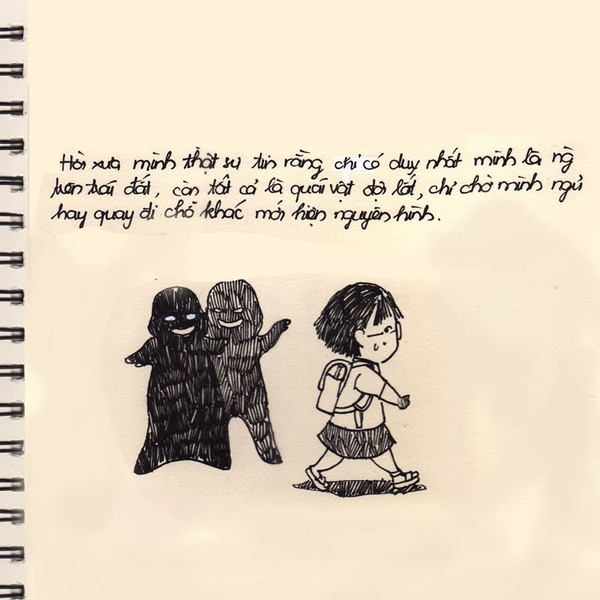 Hồi xưa mình thật sự tin rằng, chỉ có duy nhất mình là ng
trên trái đất, còn tất cả là quái vật đội lốt, chỉ chờ mình ngủ
hay quay đi chỗ khác mới hiện nguyên hình.